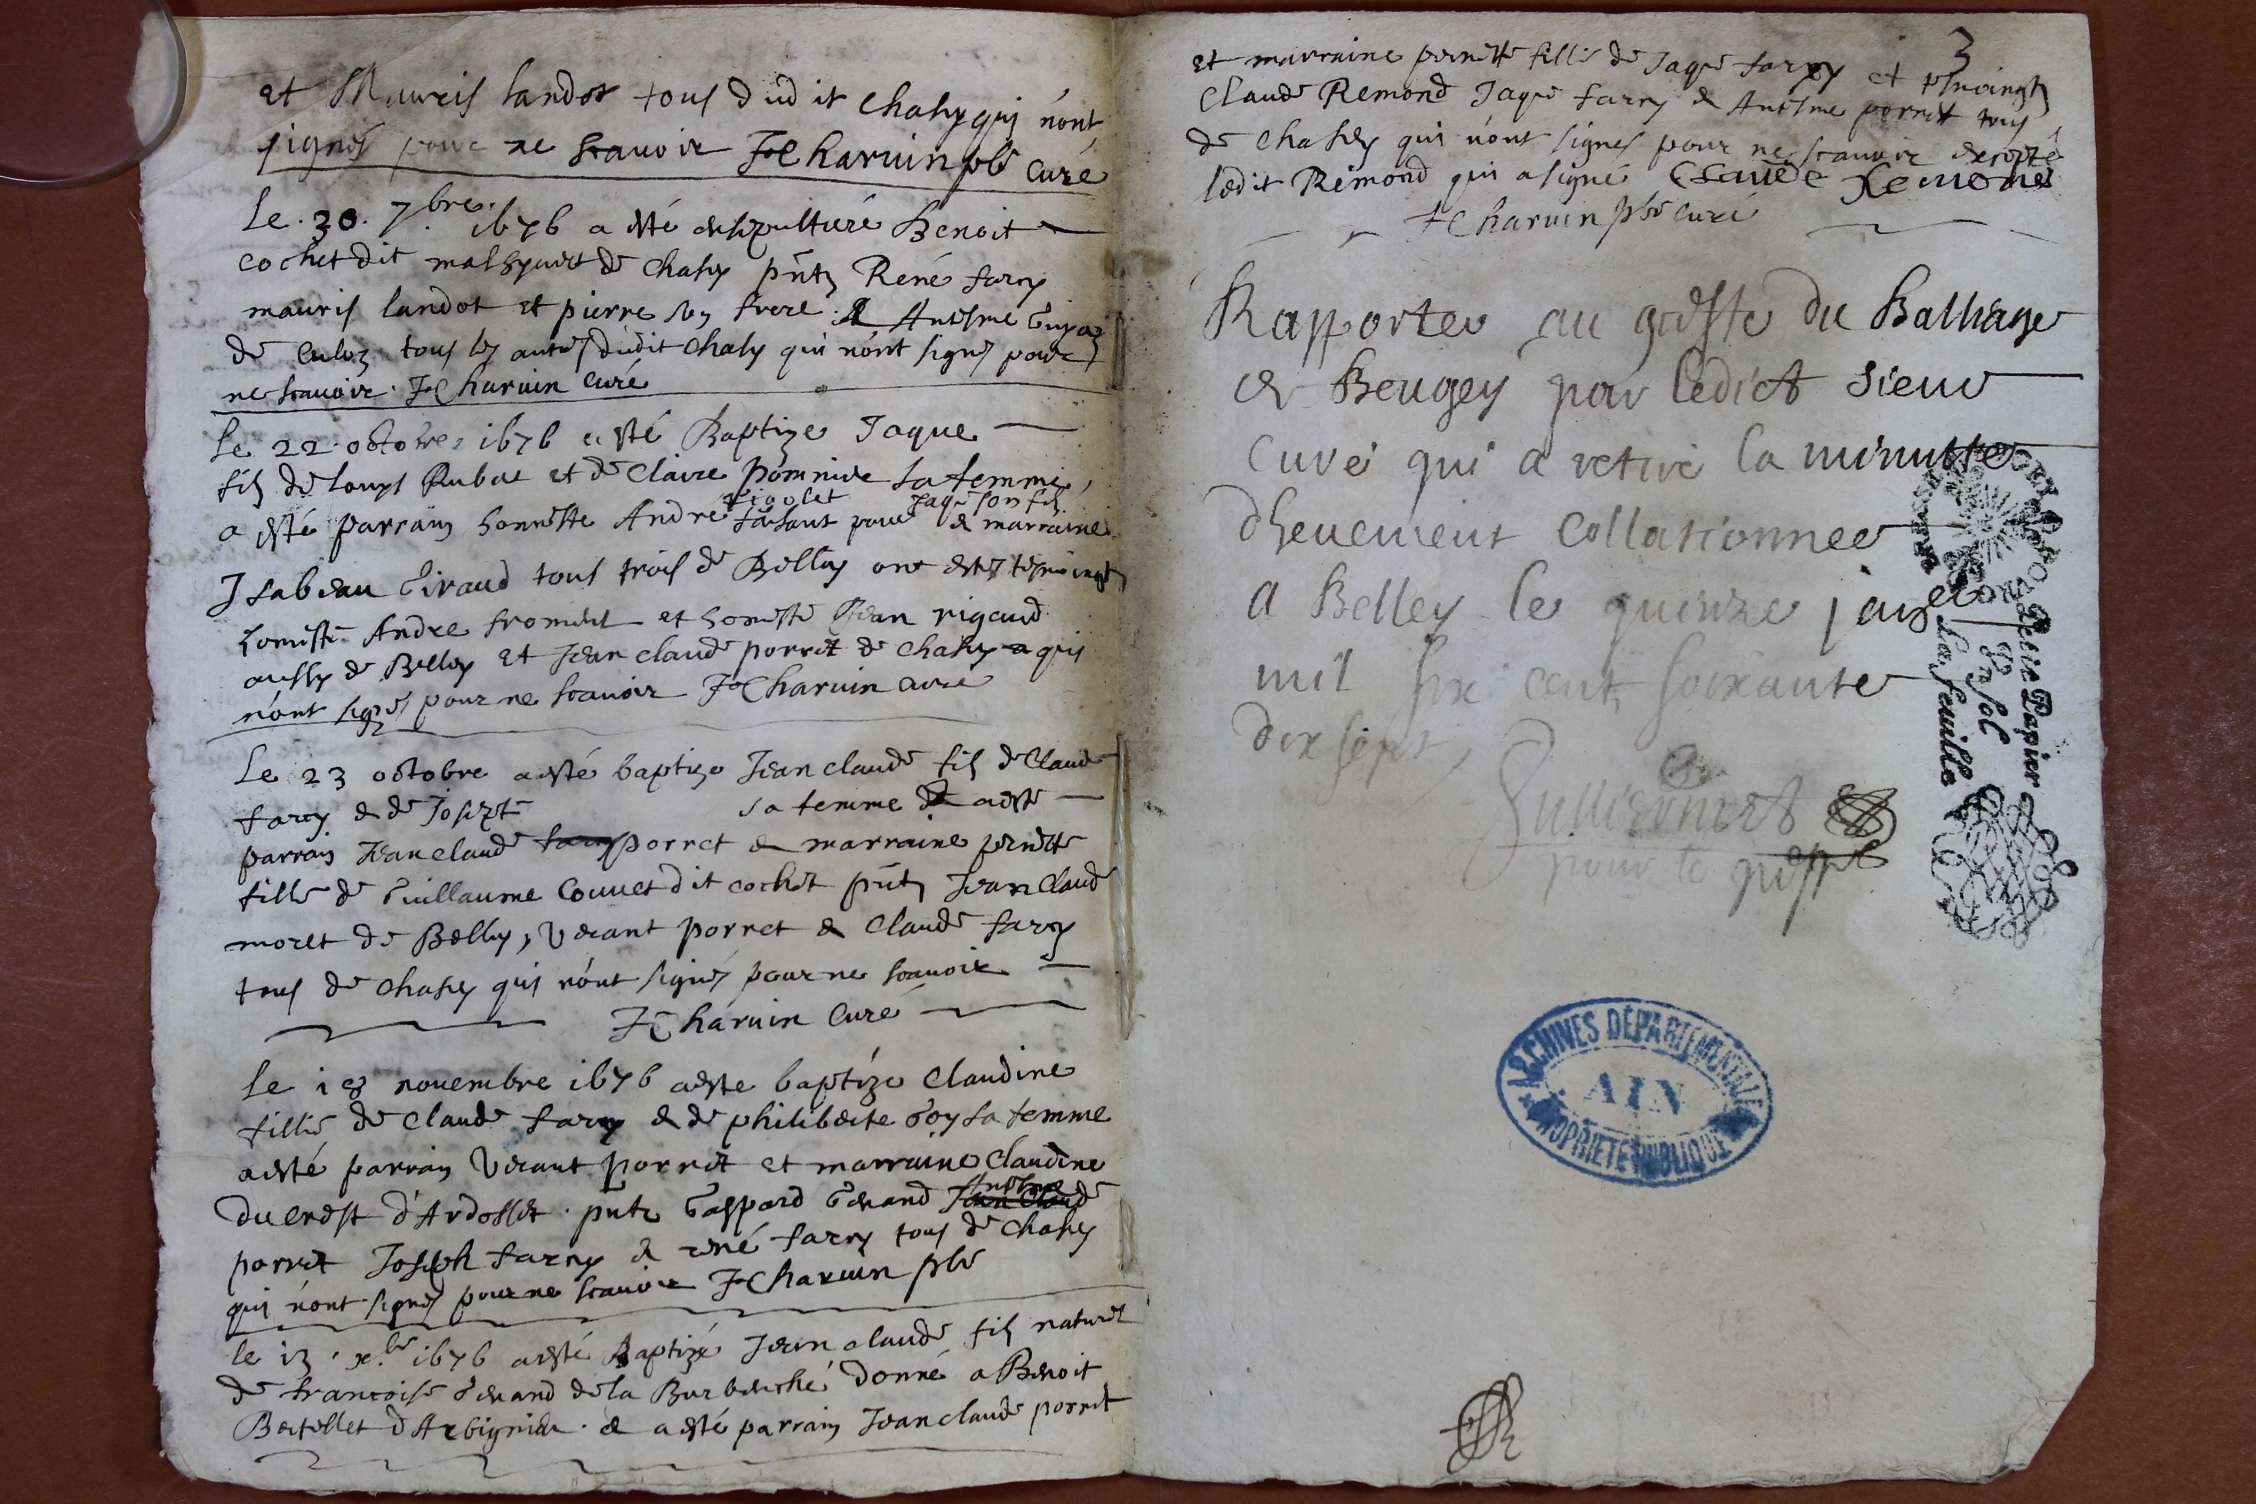 et Mauris landot tous dudit Chasey qui n'ont
signés pour ne scauoir J Charuin pbr Curé
Le 30 7.bre 1676 a esté ensepulturé Benoit
cochet dit de Chasey pntz René farcy
mauris landot et pierre son frere & Antelme
de Culoz tous les autres dudit Chasey qui n'ont signés pour
ne scauoir J Charuin Curé
Le 22 octobre 1676 a esté Baptize Jaque
filz de Louys et de Claire sa femme
a esté parrain honneste André rigolet faisant pour Jaque son filz & marraine
Isabeau Giraud tous trois de Belley ont estes tesmoingtz
honneste Andre froment et honneste Jean rigaud
aussy de Belley et Jean claude porret de Chasey qui
n'ont signés pour ne scauoir J Charuin curé
Le 23 octobre a esté baptize Jean claude filz de Claude
farcy & de Josepte sa femme a esté
parrain Jean claude farcy porret & marraine pernette
fille de Guillaume Couuet dit cochet pntz Jean Claude
moret de Belley, Verant porret & Claude farcy
tous de Chasey qui n'ont signés pour ne scauoir
J Charuin Curé
Le 18 novembre 1676 a este baptize Claudine
fillie de Claude farcy & de philiberte Goy sa femme
a esté parrain Verant porret et marraine Claudine
du Crest d'Ardosset pntz Gaspard Geuand Jean Claude Antelme
porret Joseph farcy & rené farcy tous de Chasey
qui n'ont signés pour ne scauoir J Charuin pbr
le 13 x.br 1676 a esté Baptizé Jean claude filz naturel
de francoise Geuand de la Burbanche donné a Benoit
Bertellet d'Arbignieu & a esté parrain Jean claude porret
3
et marraine pernette fillie de Jaque farcy et tesmoingtz
Claude Remond Jaque farcy & Antelme porret tous
de Chasey qui n'ont signés pour ne scauoir excepté
ledit Remond qui a signé Claude Remond
J Charuin pbr Curé
Rapporter au greffe du Balliage
de Beugey par ledict sieur
Curé qui a retiré la minutte
dheuement Collationnee
A Belley le quinze janer
mil six cent soixante
dix sept
pour le greffe
Petit Papier
Vn Sol
La feuille
ARCHIVES DÉPARTEMENTALES
AIN
PROPRIÉTÉ PUBLIQUE